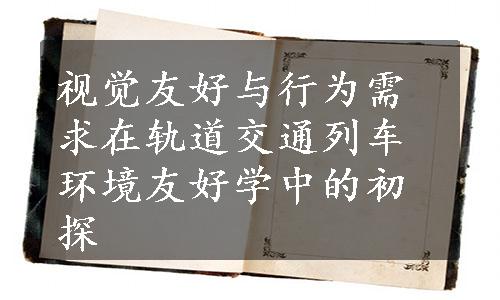 视觉友好与行为需
求在轨道交通列车
环境友好学中的初
探